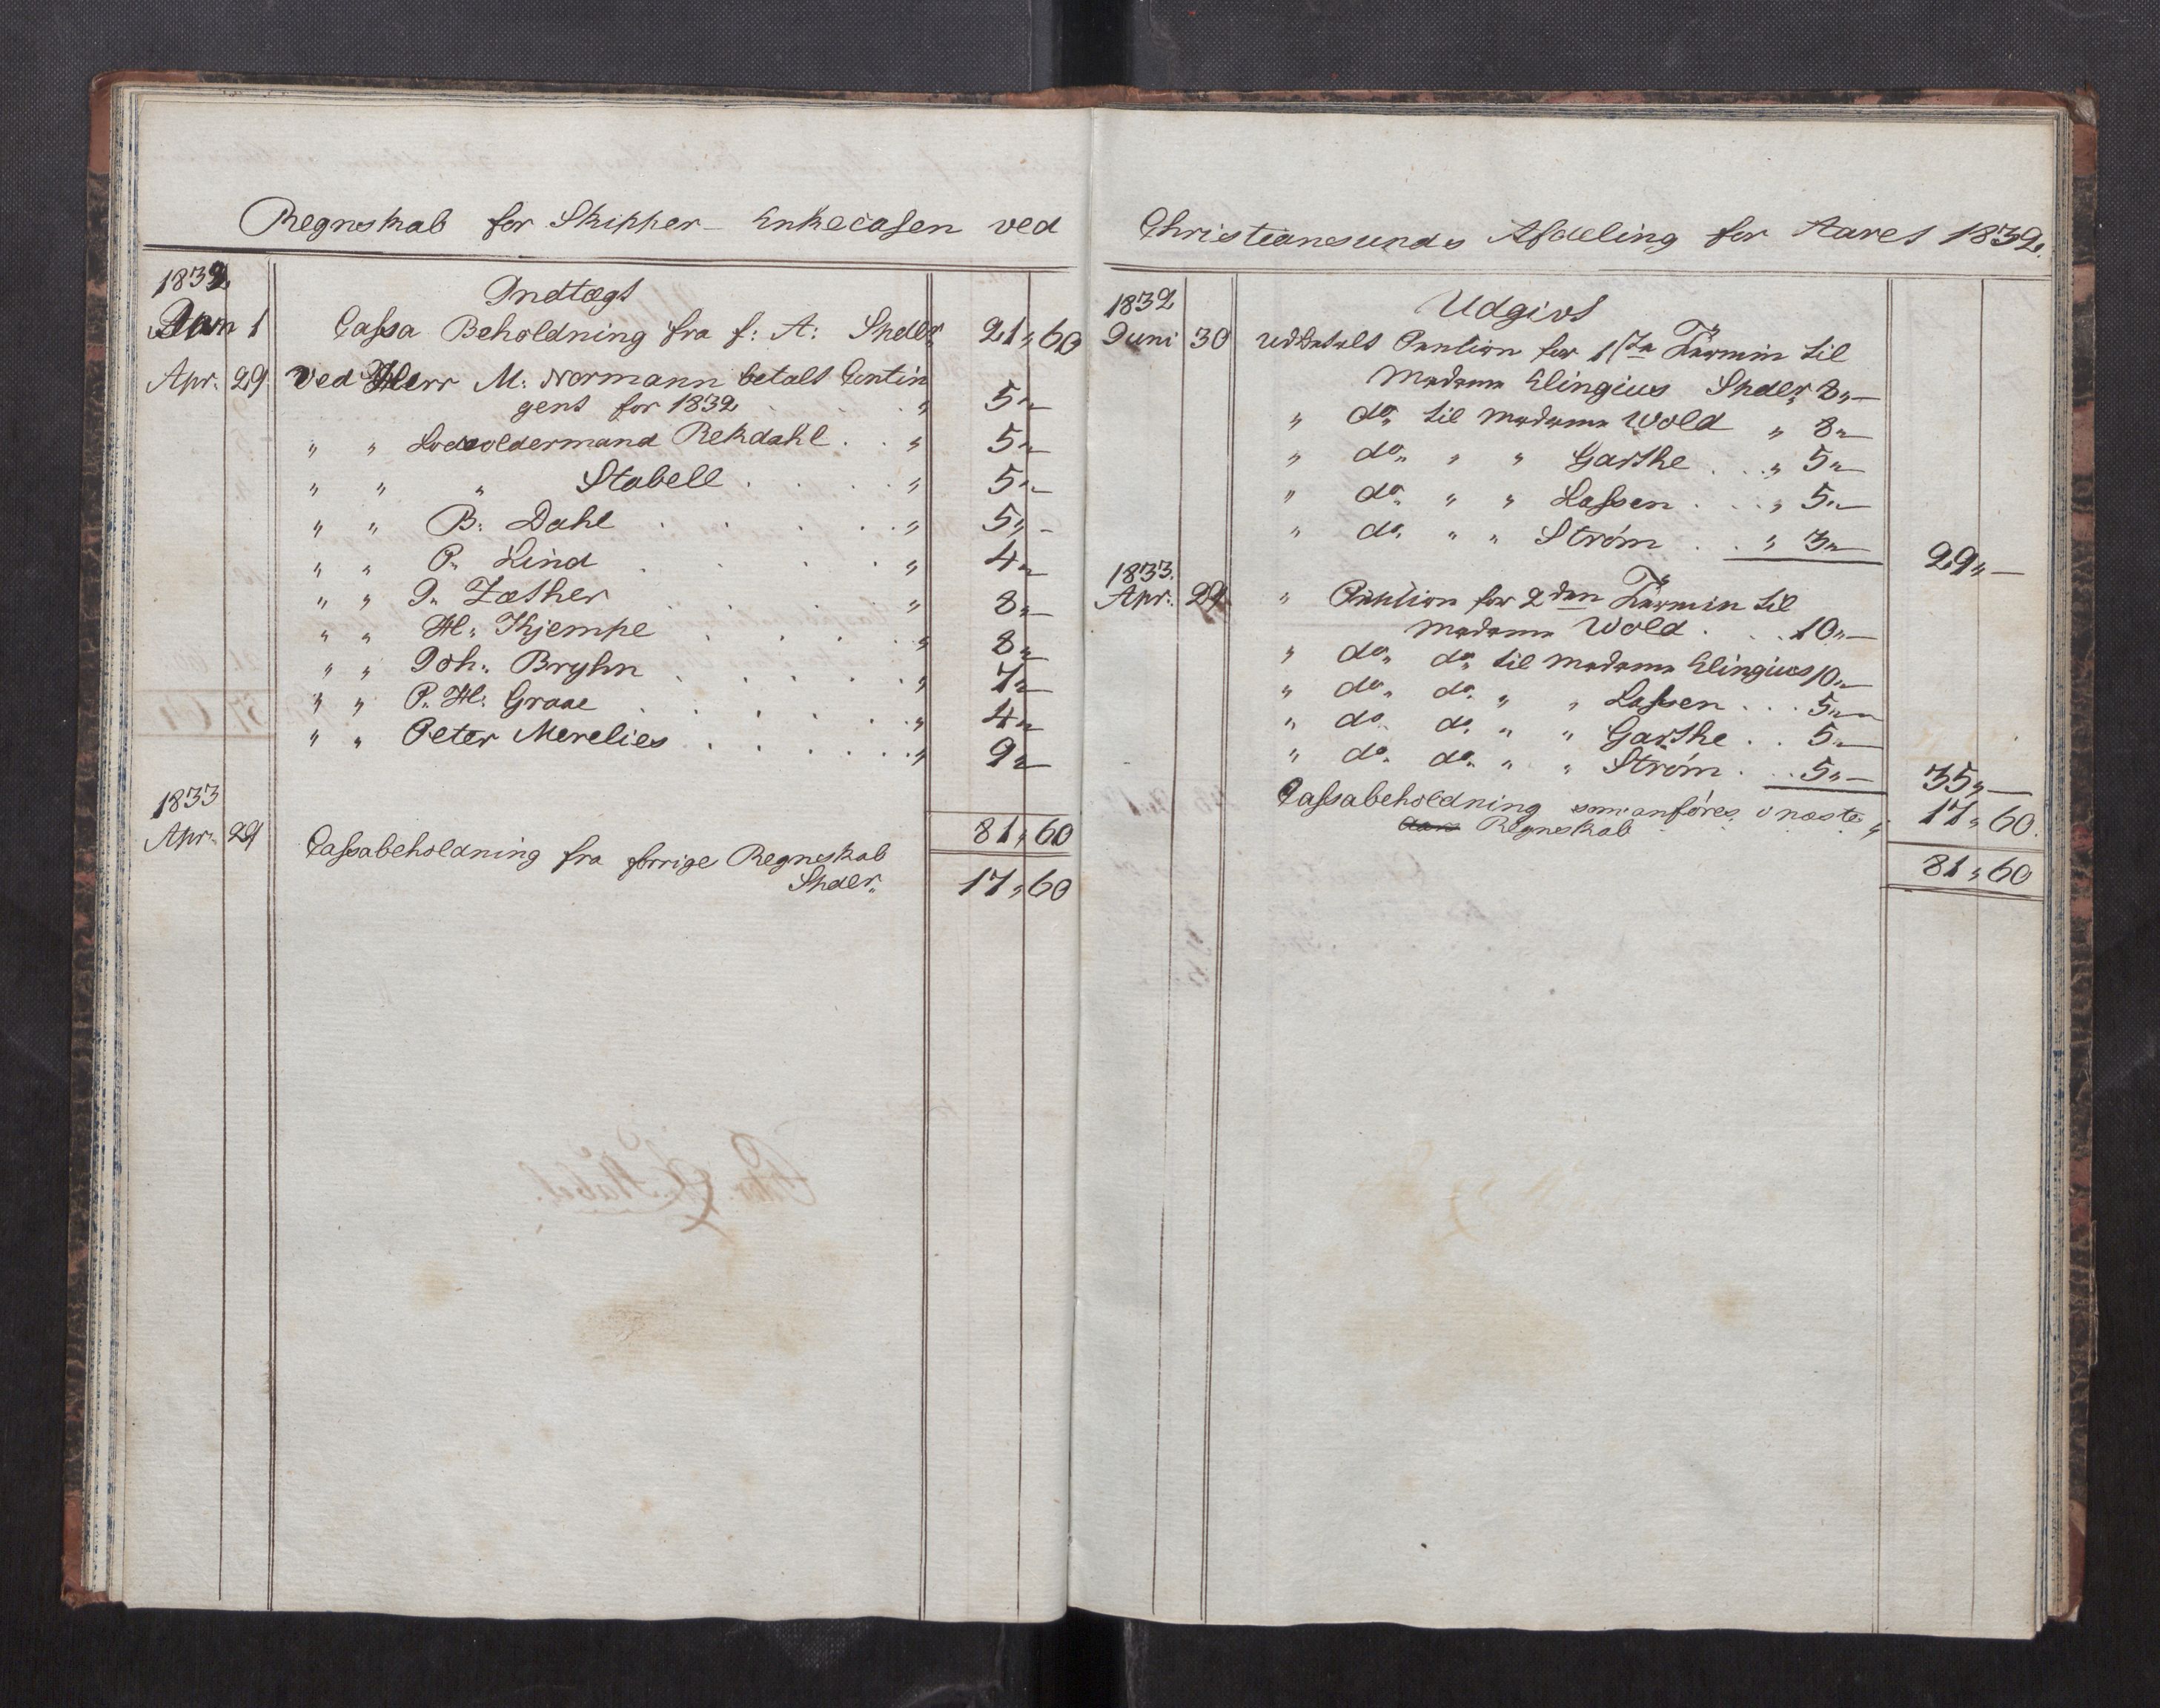 Regnskab for Skipper- Enkecasen ved
1832
Indtægt
Jan 1 Cassa Beholdning fra f: A: Spdlr 21 " 60
Apr. 29 Ved Herr M. Normann betalt Contin
gent for 1832 . . " 5 " —
" " Lodsoldermand Rekdahl . . " 5 " —
" " " Stabell . . . . " 5 " —
" " B. Dahl . . . . . " 5 " —
" " P. Lind . . . . " 4 " —
" " J. Zæther . . . " 8 " —
" " H. Kjempe . . . . " 8 " —
" " Joh. Bryhn . . . . . " 7 " —
" " P. H. Graae . . . . . " 4 " —
" " Peter Merelies . . . . . " 9 " —
81 " 60
1833
Apr. 29 Cassabeholdning fra forrige Regneskab
Spdlr. 17 " 60
Christiansunds Afdeling for Aaret 1832.
1832
Udgivt
Juni 30 Udbetalt Pention for 1ste Termin til
Madame Elingius Spdlr 8 " —
" do. til Madame Wold " 8 " —
" do. " " Garthe . . " 5 " —
" do. " " Lassen . . . " 5 " —
" do. " " Strøm . . " 3 " —
29 " —
1833.
Apr. 29 " Pention for 2den Termin til
Madame Wold . . . 10 " —
" do. do. til Madame Elingius 10 " —
" do. do. " " Lassen . . . 5 " —
" do. do. " " Garthe . . 5 " —
" do. do. " " Strøm . . . 5 " —
35 " —
Cassabeholdning som anføres i næste " 17 " 60.
Regneskab
81 " 60